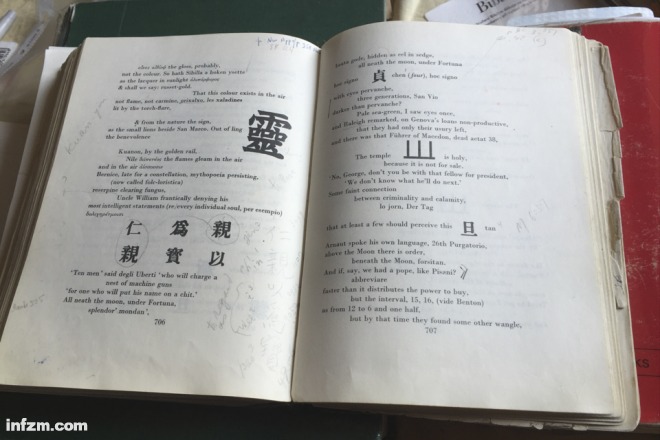 often called the gloss, probably,
not the colour. So hath Sibilla a boken ysette
as the lacquer in sunlight
& shall we say: russet-gold.
That this colour exists in the air
not flame, not carmine, orixalxo, les xaladines
lit by the torch-flare,
& from the nature the sign,
as the small lions beside San Marco. Out of ling
the benevolence
靈
Kuanon, by the golden rail,
Nile the flames gleam in the air
and in the air
Bernice, late for a constellation, mythopoeia persisting,
(now called folc-loristica)
reserpine clearing fungus,
Uncle William frantically denying his
most intelligent statements (re/every individual soul, per esempio)
仁 爲 親
親 寳 以
'Ten men' said degli Uberti 'who will charge a
nest of machine guns
'for one who will put his name on a chit.'
All neath the moon, under Fortuna,
splendor' mondan',
706
beata gode, hidden as eel in sedge,
all neath the moon, under Fortuna
hoc signo 貞 chen (four), hoc signo
with eyes pervanche,
three generations, San Vio
darker than pervanche?
Pale sea-green, I saw eyes once,
and Raleigh remarked, on Genova's loans non-productive,
that they had only their usury left,
and there was that Führer of Macedon, dead aetat 38,
The temple is holy,
because it is not for sale.
'No, George, don't you be with that fellow for president,
'We don't know what he'll do next.'
Some faint connection
between criminality and calamity,
lo jorn, Der Tag
that at least a few should perceive this 旦 tan
Arnaut spoke his own language, 26th Purgatorio,
above the Moon there is order,
beneath the Moon, forsitan.
And if, say, we had a pope, like Pisani?
abbreviare
faster than it distributes the power to buy,
but the interval, 15, 16, (vide Benton)
as from 12 to 6 and one half,
but by that time they found some other wangle,
707
infzm.com